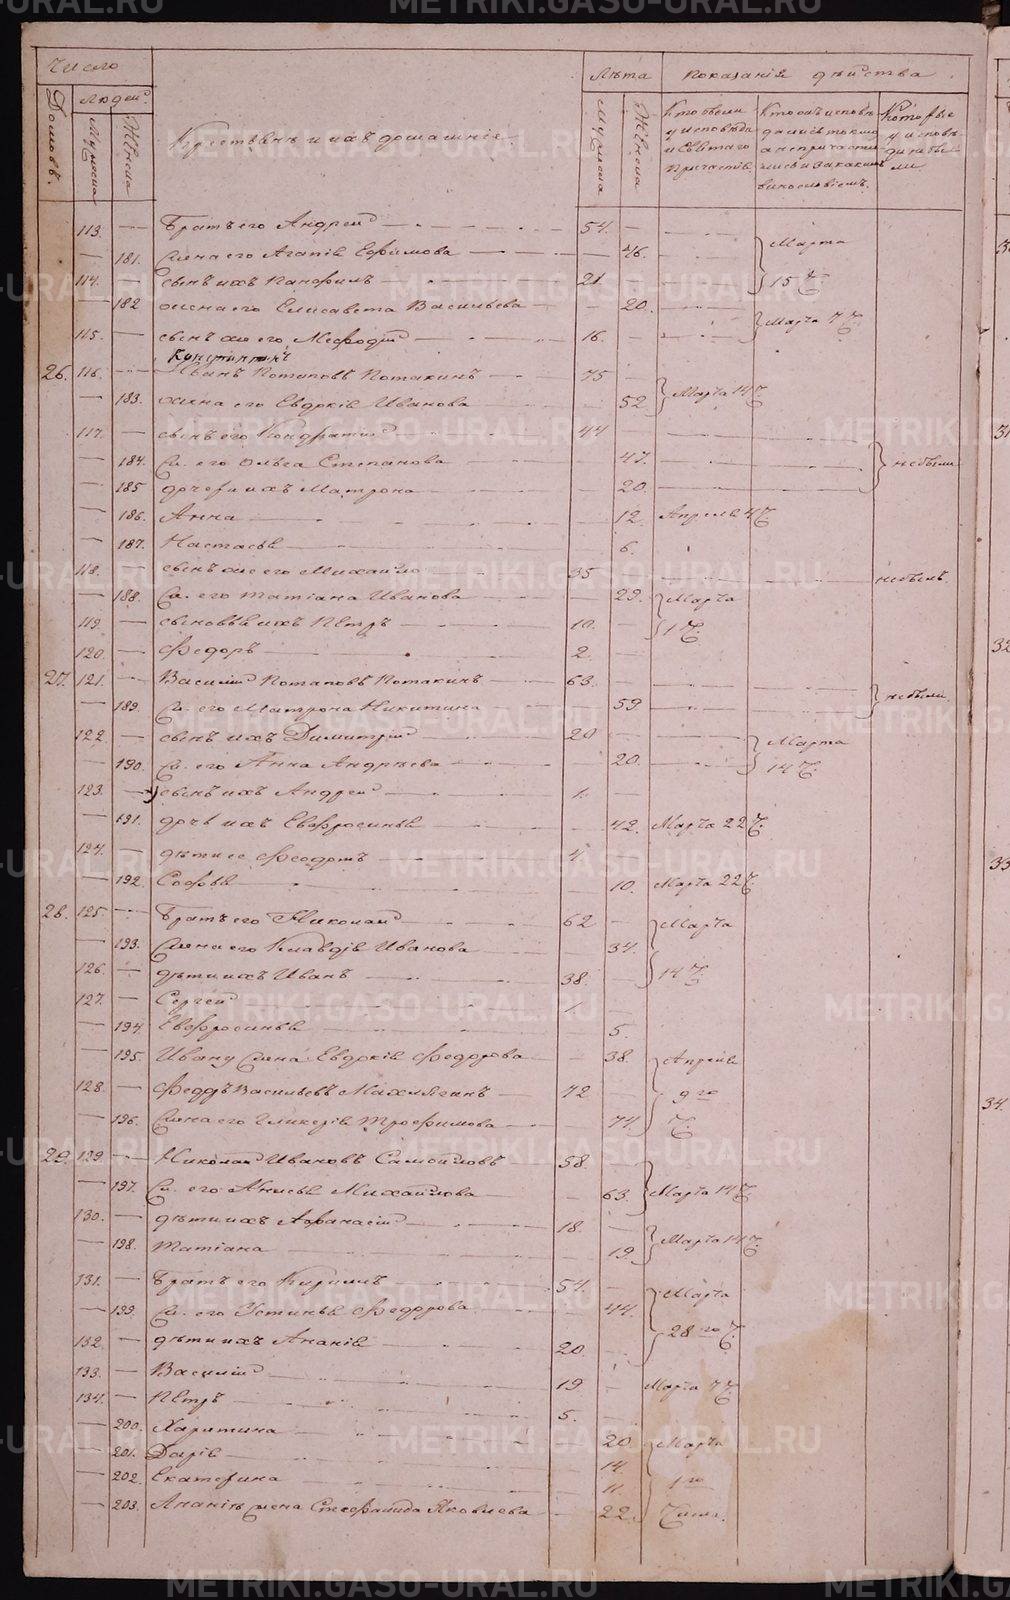 Число
Домовъ. Людей
Мужеска Женска
Крестьяне и ихъ домашніе
Лѣта
Мужеска Женска
Показаніе дѣйства
Кто были у исповѣди и Святаго Причастія
Которые у исповѣди не были
113. Братъ его Андрей 54.
181. Жена его Агапія Ефимова 46. Марта
114. сынъ ихъ Панфилъ 21 15 Ч.
182 жена его Елисавета Васильева 20.
115. сынъ же его Мефодій 16. Марта 7 Ч.
Константинъ
26. 116. Иванъ Потаповъ Потакинъ 75
183. жена его Евдокія Иванова 52 Марта 14 Ч.
117. сынъ его Кондратій 44
184. Ж. его Ольга Степанова 47. не были
185 дочери ихъ Матрона 20.
186. Анна 12. Апреля 4 Ч.
187. Настасья 6.
118. сынъ же его Михайло 35 не былъ
188. Ж. его Татіана Иванова 29. Марта
119. сыновья ихъ Петръ 10. 1 Ч.
120. Федоръ 2.
27. 121. Василій Потаповъ Потакинъ 63.
189. Ж. его Матрона Никитина 59 не были
122. сынъ ихъ Димитрій 20 Марта
190. Ж. его Анна Андреева 20. 14 Ч.
123. сынъ ихъ Андрей 1.
191. дочь ихъ Евфросинья 42. Марта 22 Ч.
124. дѣти ее Феодотъ 4
192. Софья 10. Марта 22 Ч.
28. 125. Братъ его Николай 62 Марта
193. Жена его Клавдія Иванова 34.
126. дѣти ихъ Иванъ 38. 14 Ч.
127. Сергей 1.
194. Евфросинья 5.
195. Ивану Жена Евдокія Федорова 38. Апреля
128. Федоръ Васильевъ 72 9го
196. Жена его Гликерія Трофимова 74. Ч.
29. 129. Николай Ивановъ Самойловъ 58.
197. Ж. его Анисья Михайлова 63. Марта 14 Ч.
130. дѣти ихъ Афанасій 18. Марта 14 Ч.
198. Татіана 19.
131. Братъ его Кирилъ 54. Марта
199. Ж. его Устинья Федорова 44. 28го Ч.
132. дѣти ихъ Ананія 20.
133. Василій 19 Марта 7 Ч.
134. Петръ 5.
200. Харитина 20. Марта
201. Дарія 14.
202. Екатерина 11. 1го
203. Ананіи жена Стефанида Яковлева 22. Числ.
METRIKI.GASO-URAL.RU